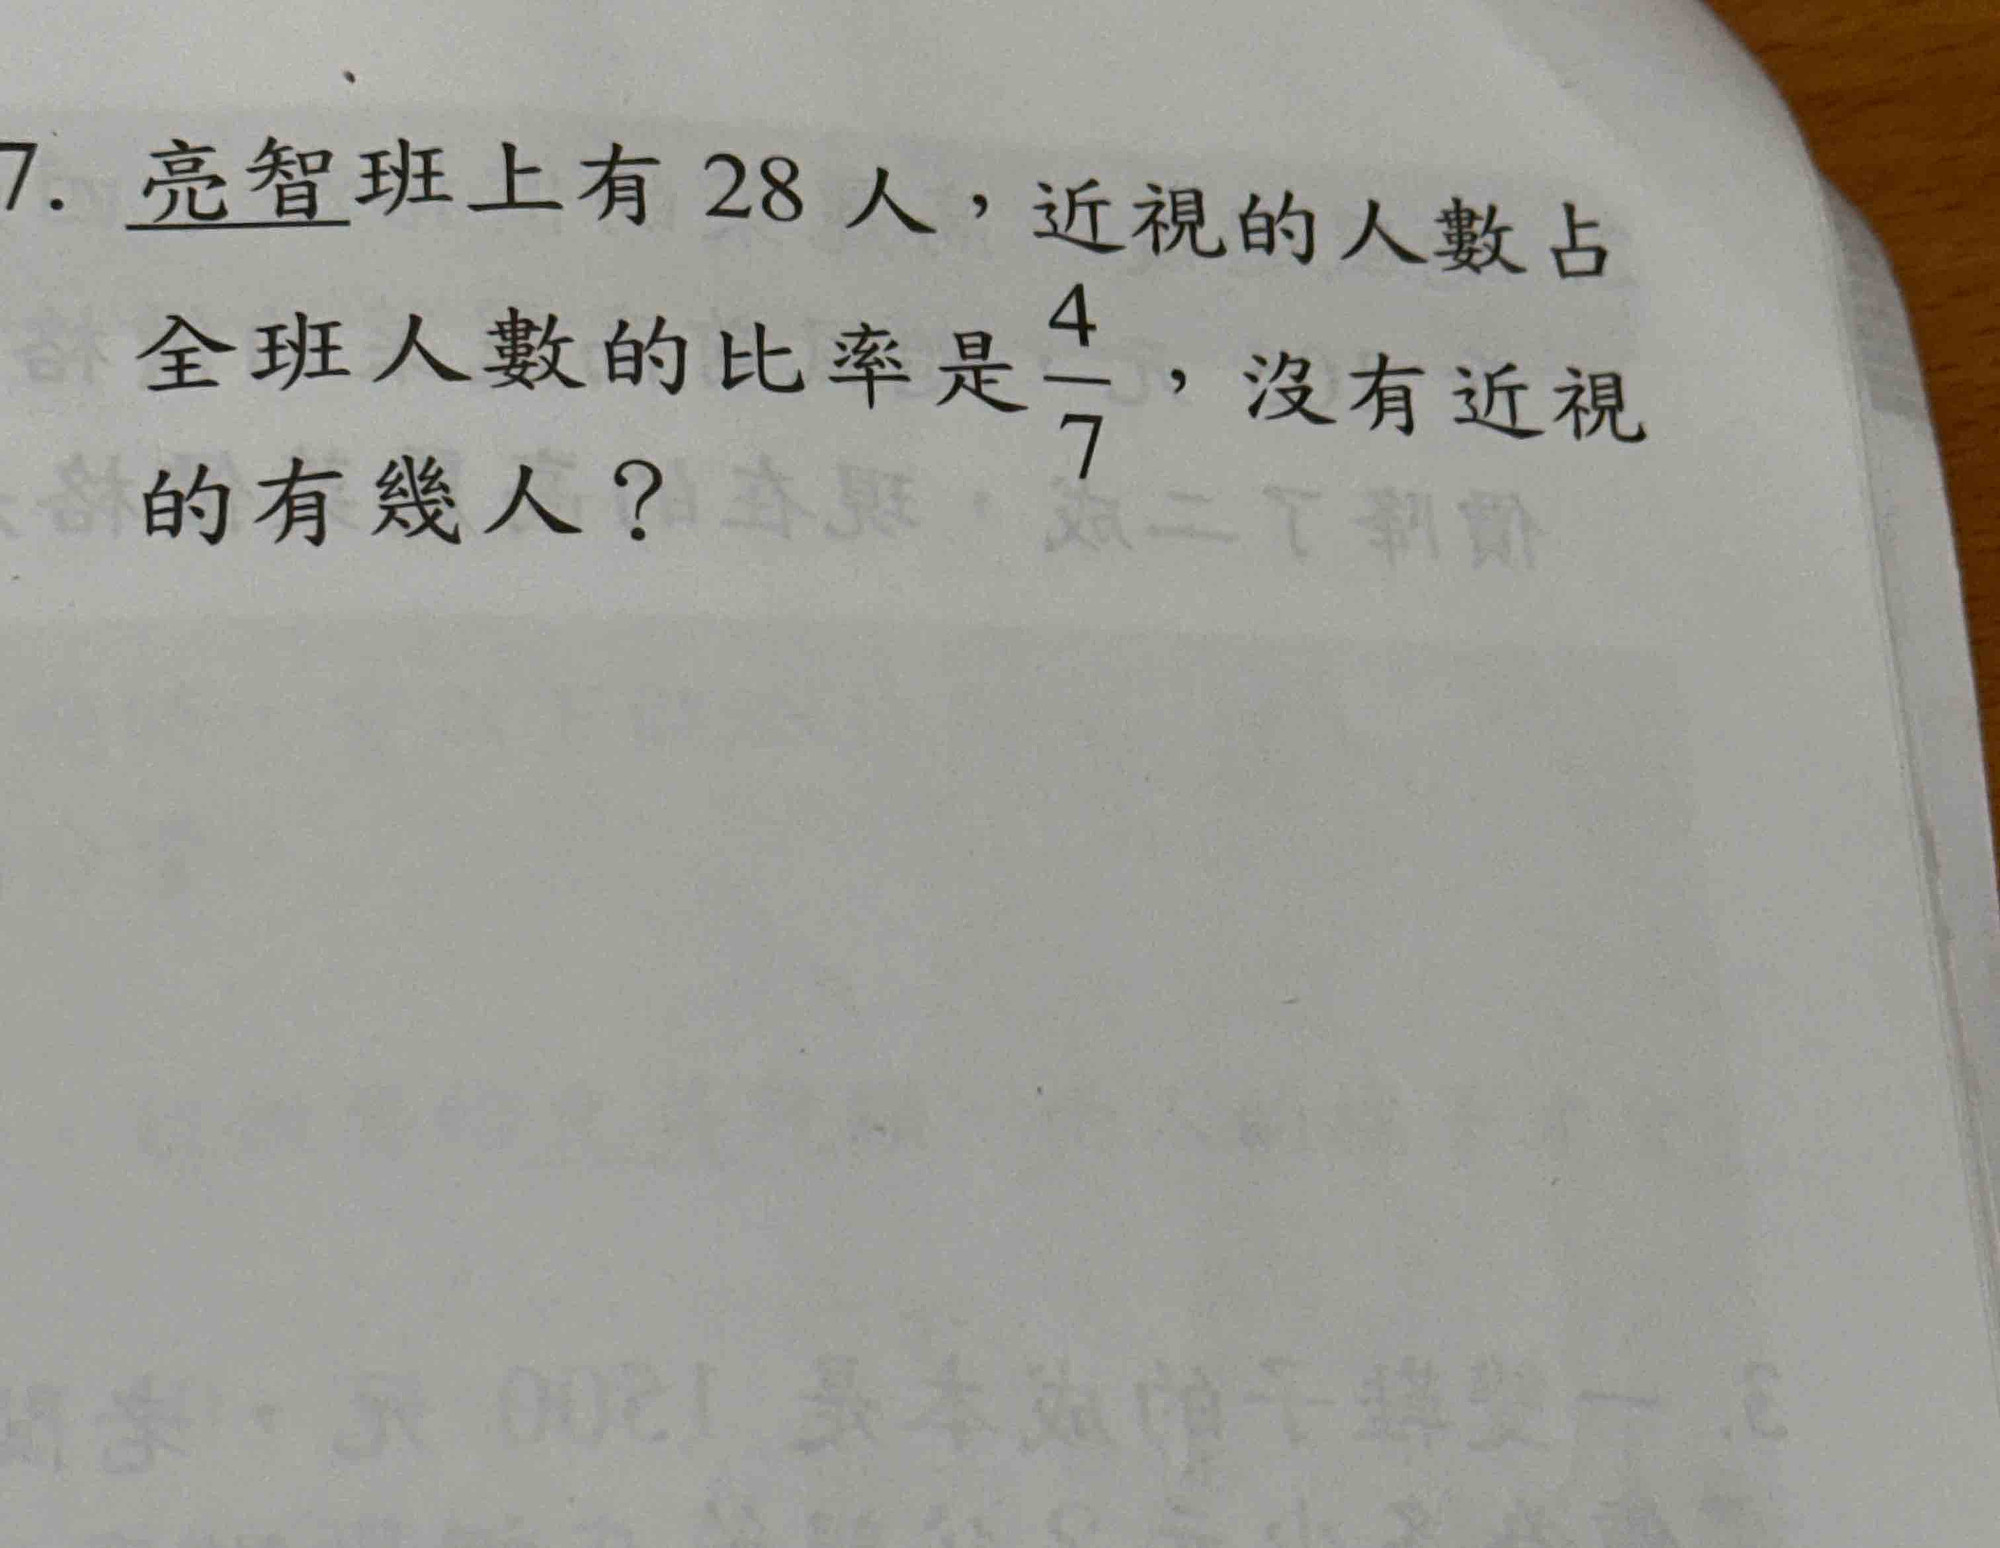 7. 亮智班上有 28 人，近視的人數占
全班人數的比率是4/7，沒有近視
的有幾人？